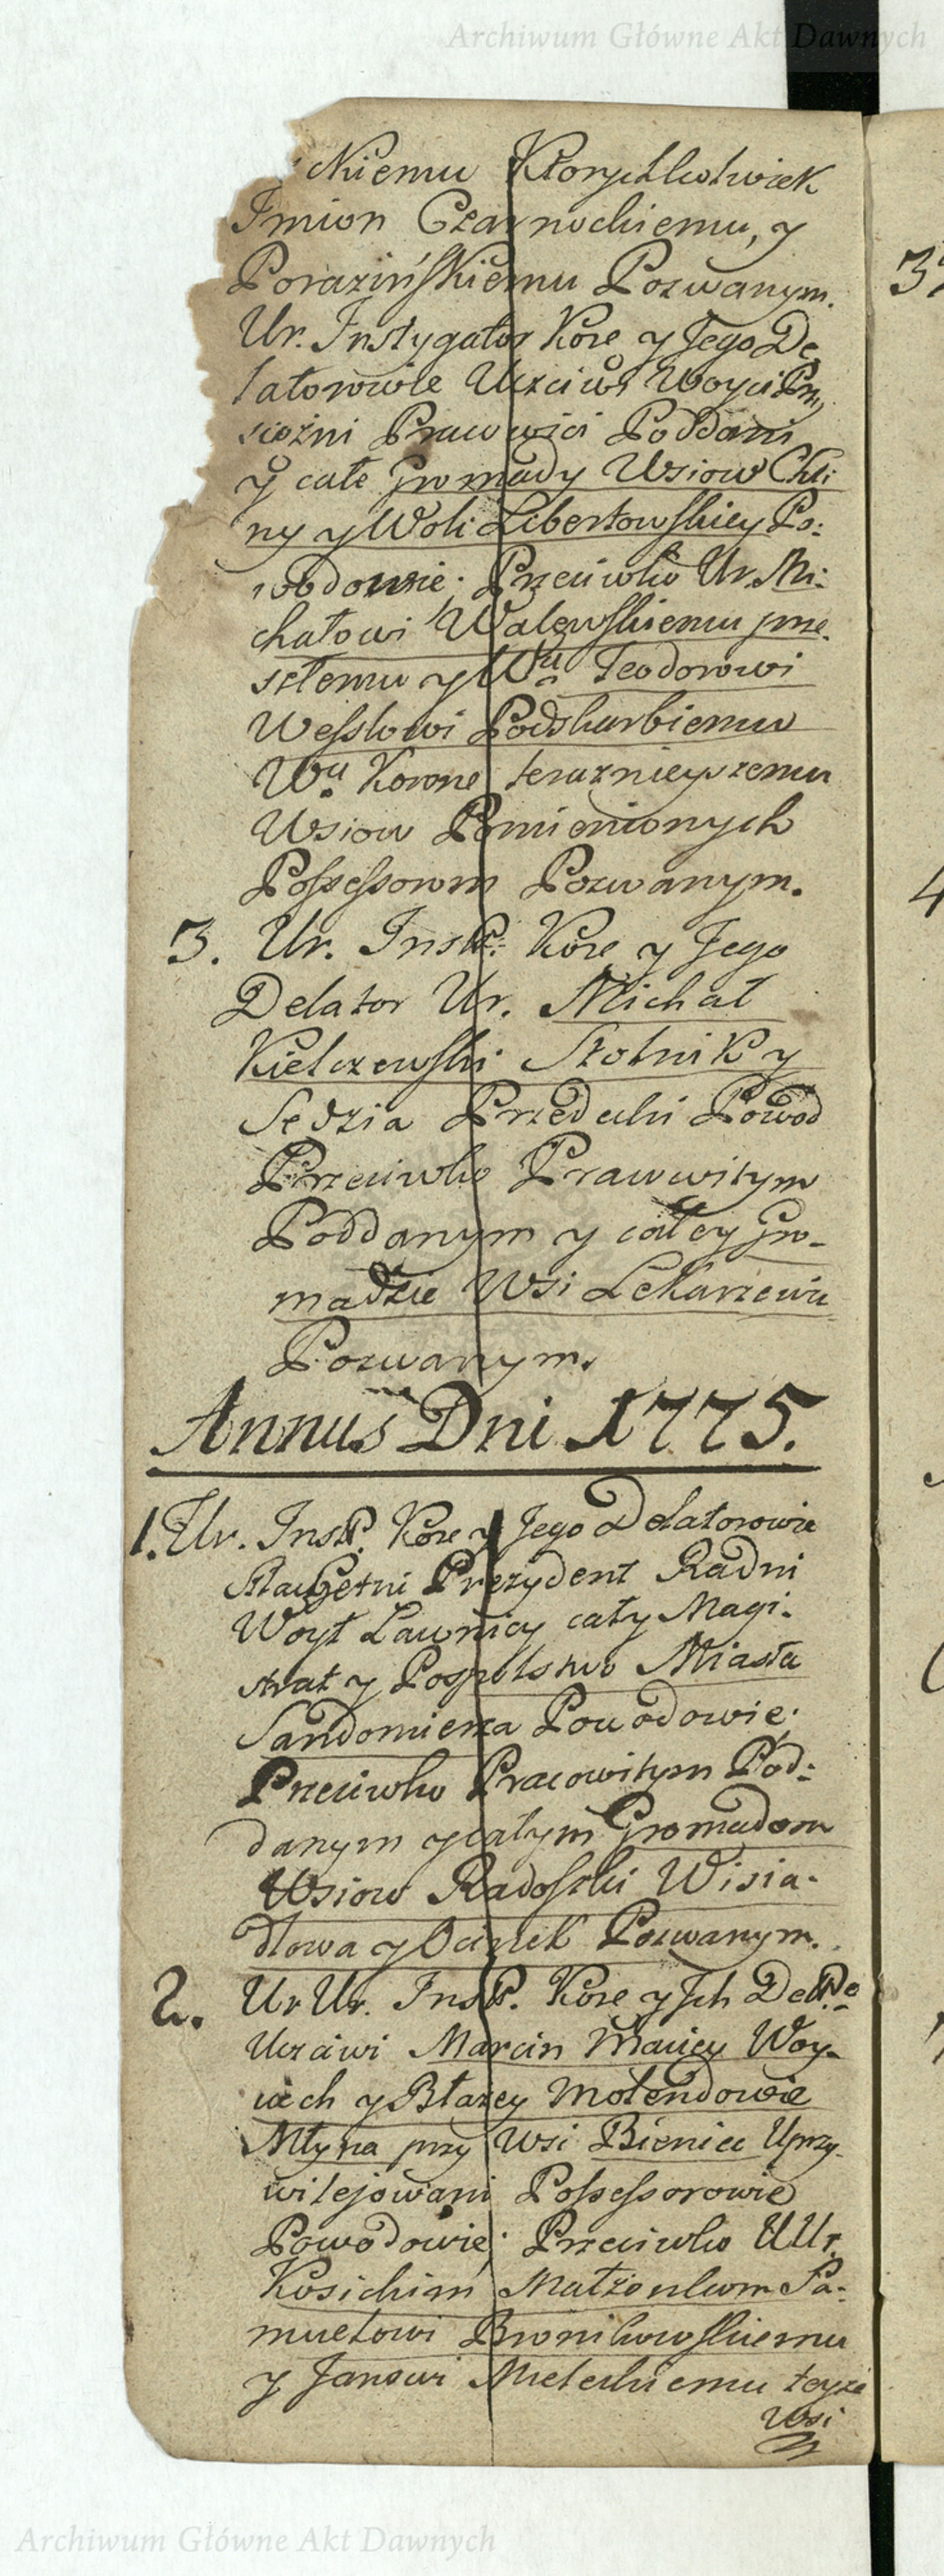 Archiwum Główne Akt Dawnych
ckiemu Ktorychkolwiek
Imion Czarnockiemu, y
Porazińskiemu Pozwanym.
Ur. Instygator Kore y Jego De
latorowie Uczciwi Woyci Przy
siężni Prawwici Poddani
y całe Gromady Wsiow Chli
ny y Woli Libertowskiey Po:
wodowie; Przeciwko Ur. Mi:
chałowi Walewskiemu prze
szłemu y Wu Teodorowi
Wesslowi Podskarbiemu
Wu Koronne terazniejszemu
Wsiow Pomienionych
Possessorom Pozwanym.
3. Ur. Instr: Kore y Jego
Delator Ur. Michał
Kiełczewski Stolnik y
Sędzia Przedecki Powod
Przeciwko Prawwitym
Poddanym y całey Gro-
madzie Wsi Lekarzewic
Pozwanym.
Annus Dni 1775.
1. Ur. Instr. Kore y Jego Delatorowie
Szlachetni Prezydent Radni
Woyt Ławnicy cały Magi-
strat y Pospolstwo Miasta
Sandomierza Powodowie;
Przeciwko Pracowitym Pod:
danym y całym Gromadom
Wsiow Radoszki Wisia-
dłowa y Ocinek Pozwanym.
2. Ur Ur. Instr. Kore y Jch Delre
Uczciwi Marcin Maciey Woy-
ciech y Błażey Molendowie
Młyna przy Wsi Bieniec Uprzy-
wilejowani Possessorowie
Powodowie; Przeciwko UUr.
Kosickim Małżonkom Sa-
muelowi Bronikowskiemu
y Janowi Meleckiemu teyże
Wsi
Archiwum Główne Akt Dawnych